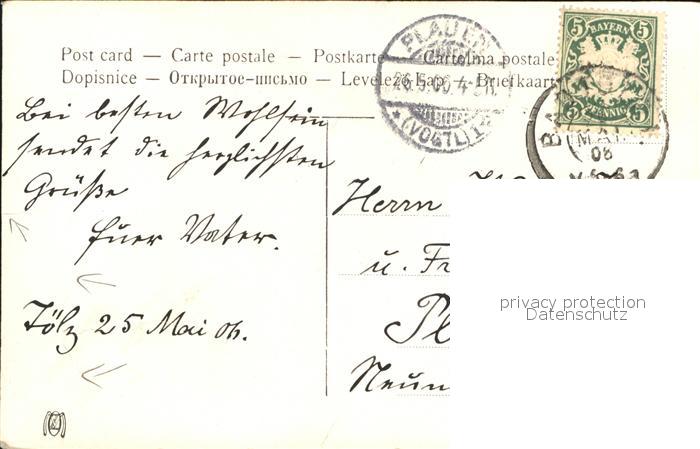 Post card — Carte postale — Postkarte — Cartolina postale
Dopisnice — Открытое-письмо — Levelező Lap — Briefkaart
PLAUEN
26.5.06. 4-5 N.
* (VOGTL) 1
5 BAYERN 5
5 PFENNIG 5
MAI
06
Bei besten Wohlsein
sendet die herzlichsten
Grüße
Euer Vater.
Tölz 25 Mai 06.
Herrn
u. Fr
Pl
Neun
privacy protection
Datenschutz